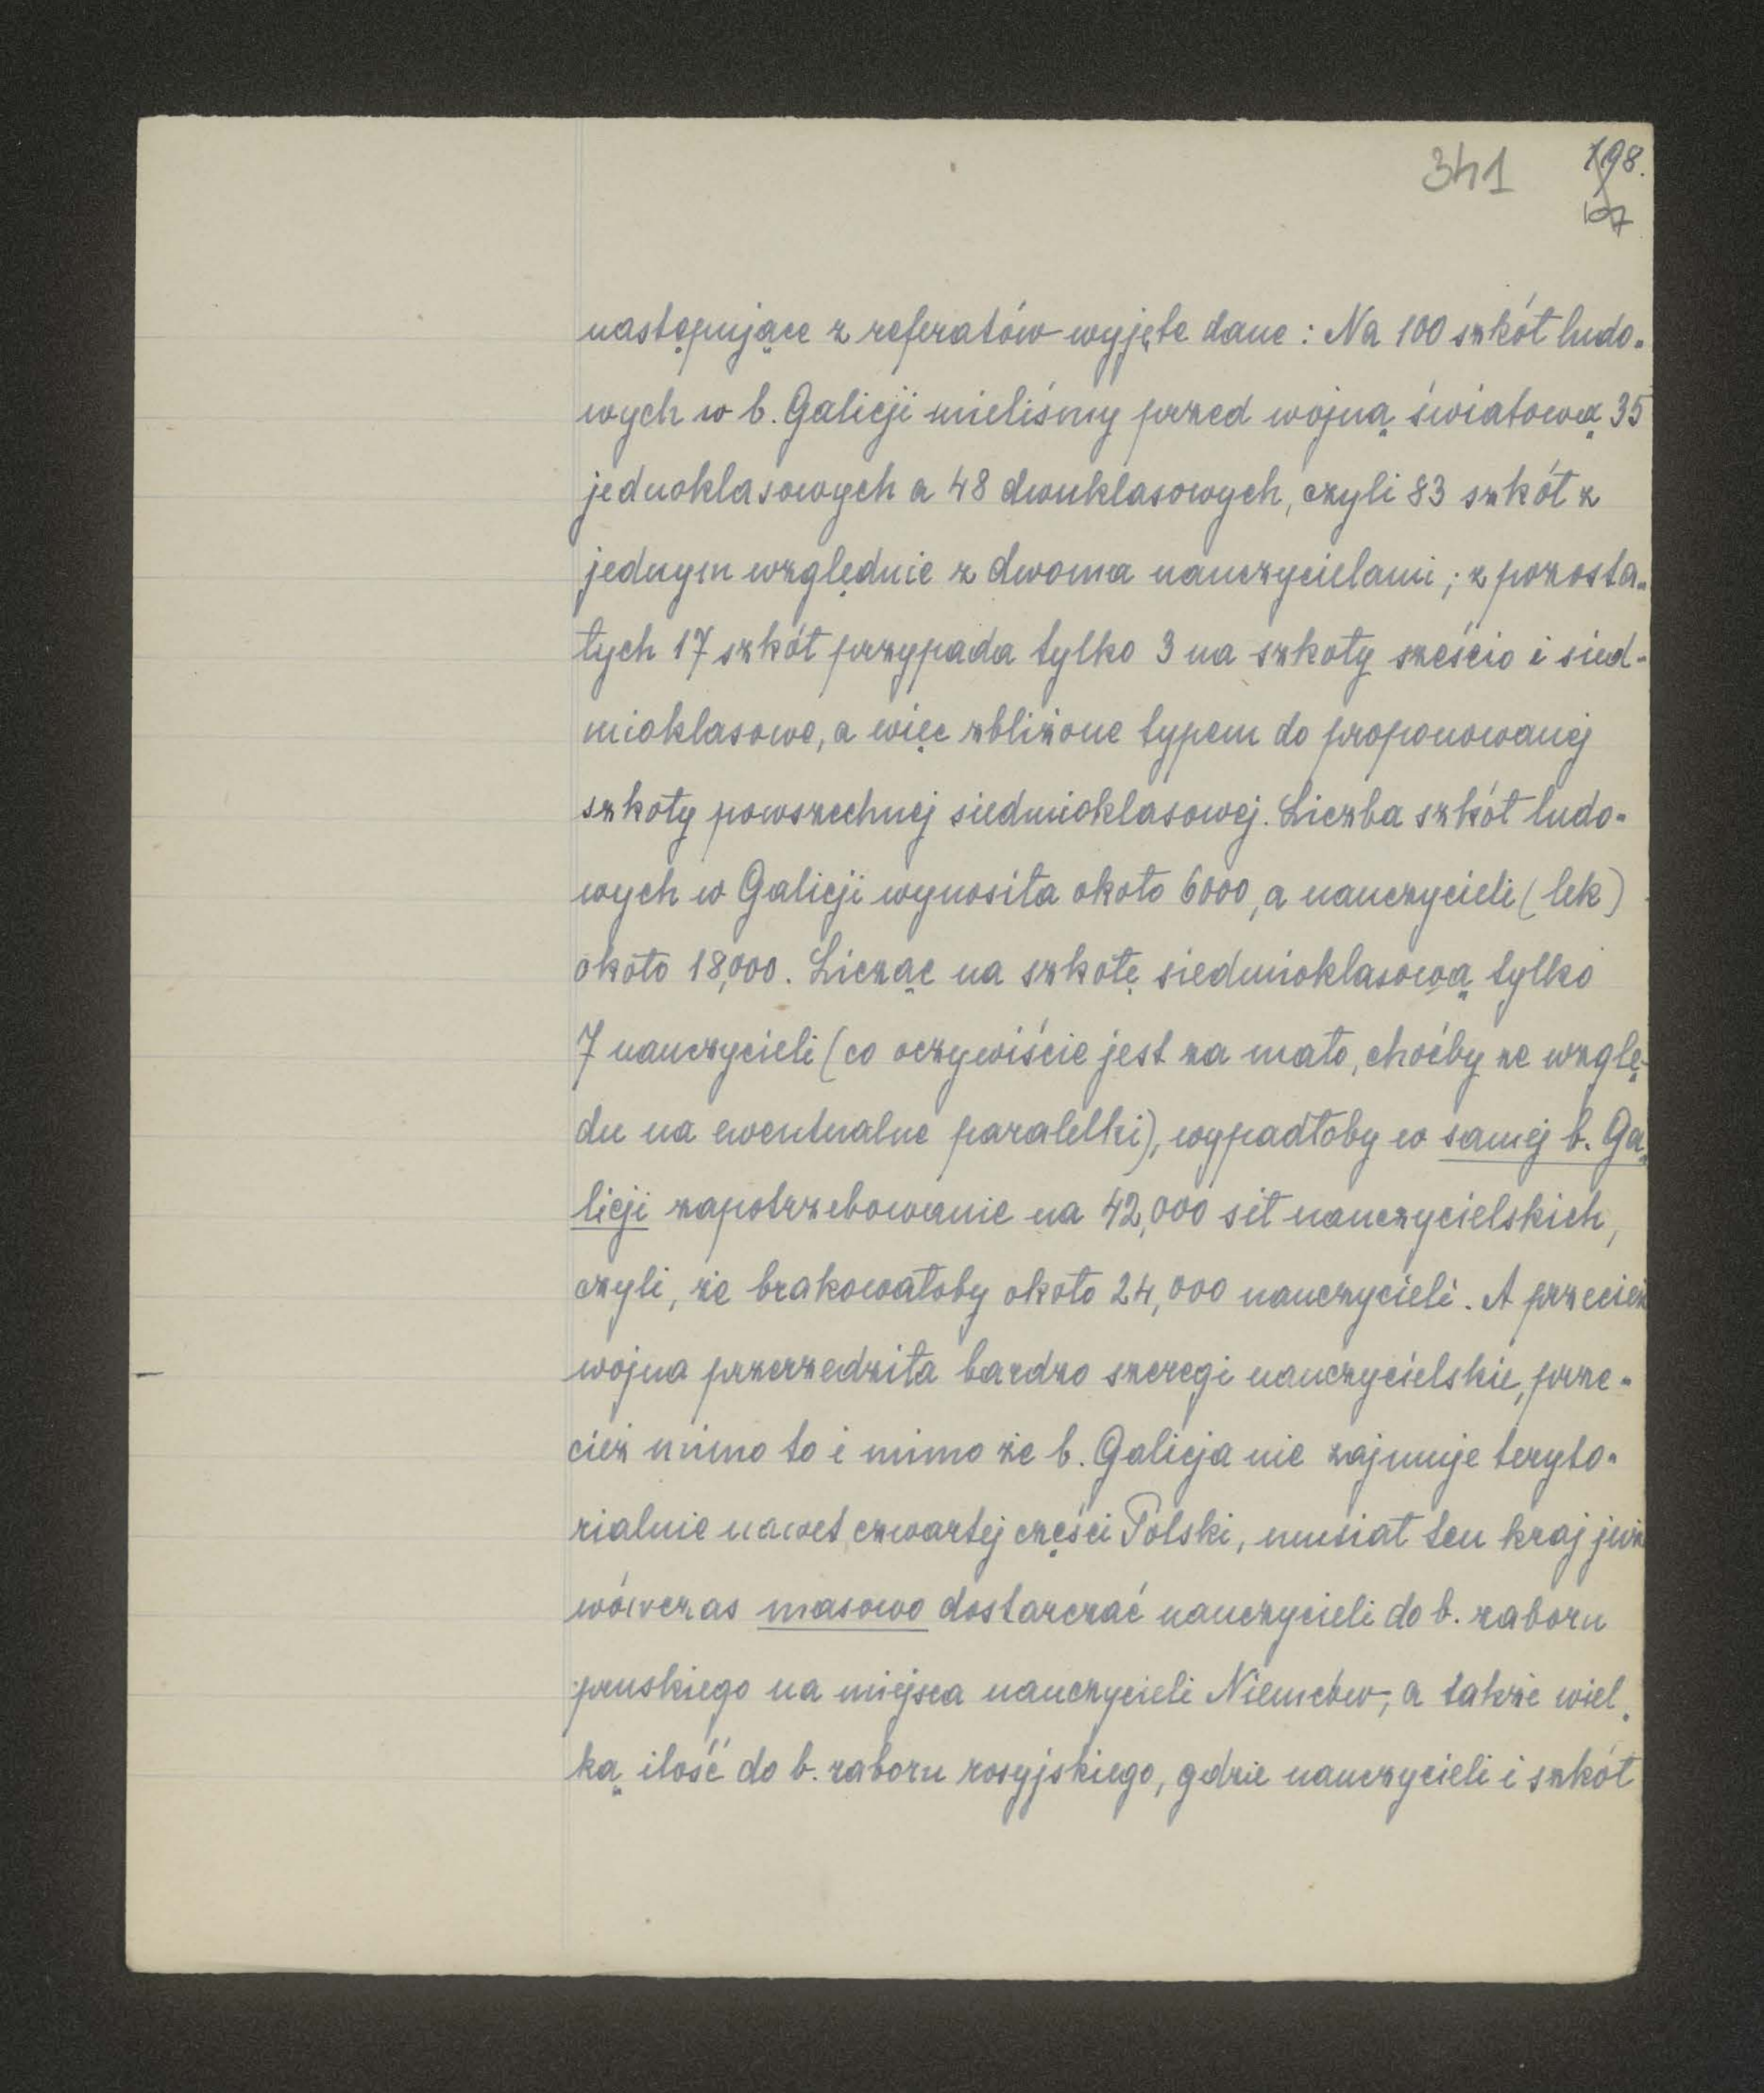 341
198.
107
następujące z referatów wyjęte dane: Na 100 szkół ludo-
wych w b. Galicji mieliśmy przed wojną światową 35
jednoklasowych a 48 dwuklasowych, czyli 83 szkół z
jednym względnie z dwoma nauczycielami; z pozosta-
łych 17 szkół przypada tylko 3 na szkoły sześcio i sied-
mioklasowe, a więc zbliżone typem do proponowanej
szkoły powszechnej siedmioklasowej. Liczba szkół ludo-
wych w Galicji wynosiła około 6000, a nauczycieli (lek)
około 18,000. Licząc na szkołę siedmioklasową tylko
7 nauczycieli (co oczywiście jest za mało, choćby ze wzglę-
du na ewentualne paralelki), wypadłoby w samej b. Ga-
licji zapotrzebowanie na 42,000 sił nauczycielskich,
czyli, że brakowałoby około 24,000 nauczycieli. A przecież
wojna przerzedziła bardzo szeregi nauczycielskie, prze-
cież mimo to i mimo że b. Galicja nie zajmuje teryto-
rialnie nawet czwartej części Polski, musiał ten kraj już
wówczas masowo dostarczać nauczycieli do b. zaboru
pruskiego na miejsca nauczycieli Niemców, a także wiel-
ką ilość do b. zaboru rosyjskiego, gdzie nauczycieli i szkół